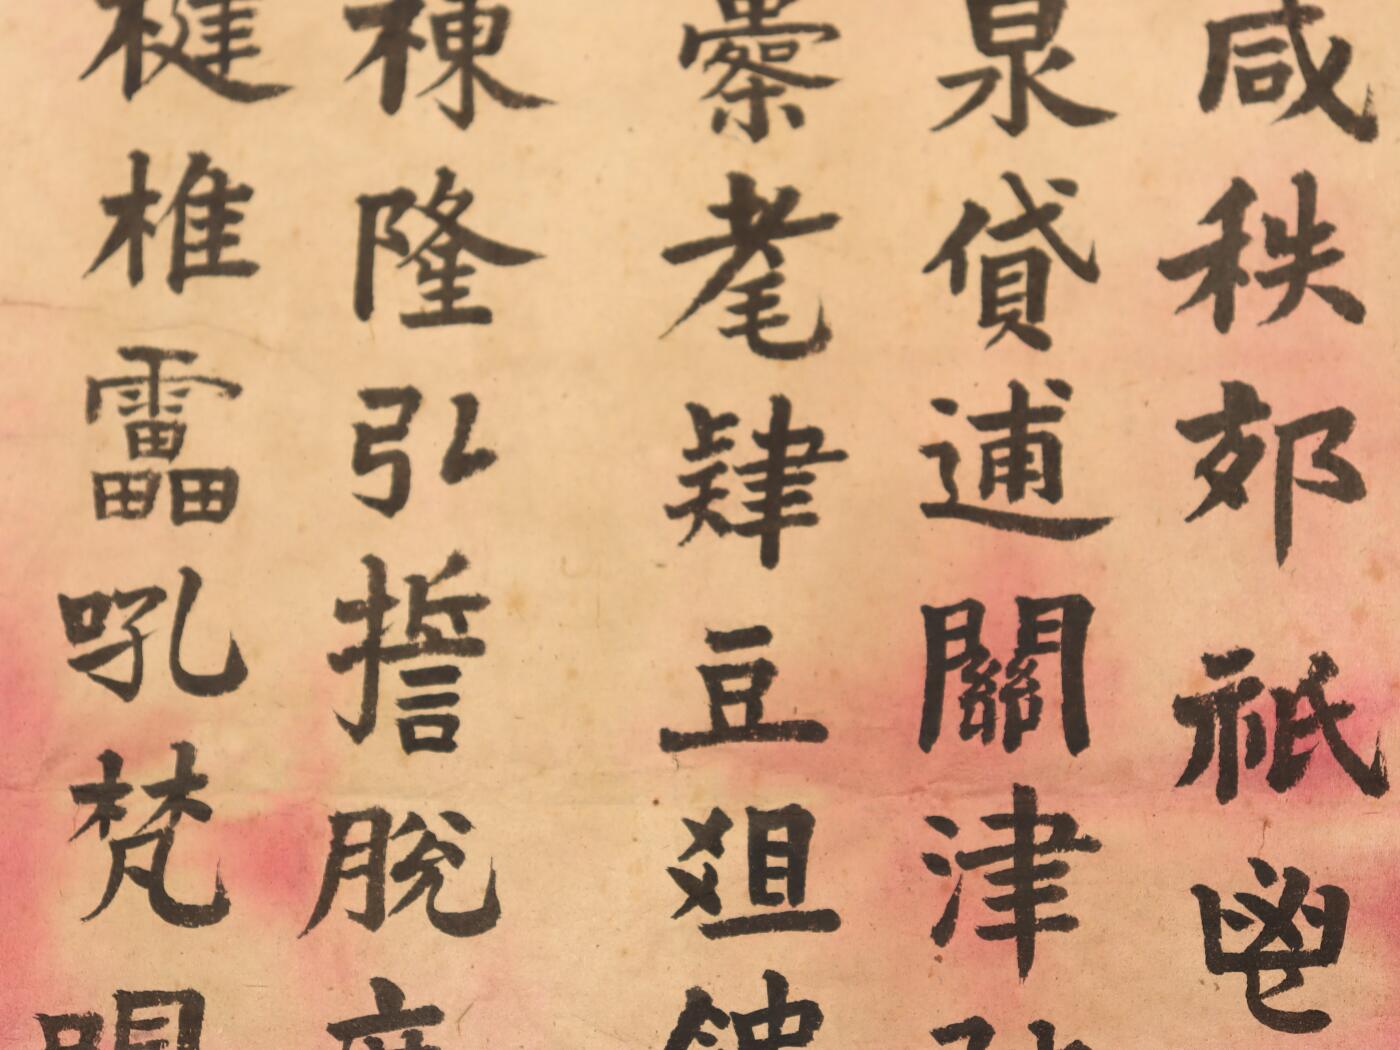 咸秩郊祇鬯
泉貸逋關津
耄肆豆爼
棟隆弘誓脫
楗椎靁吼梵唄